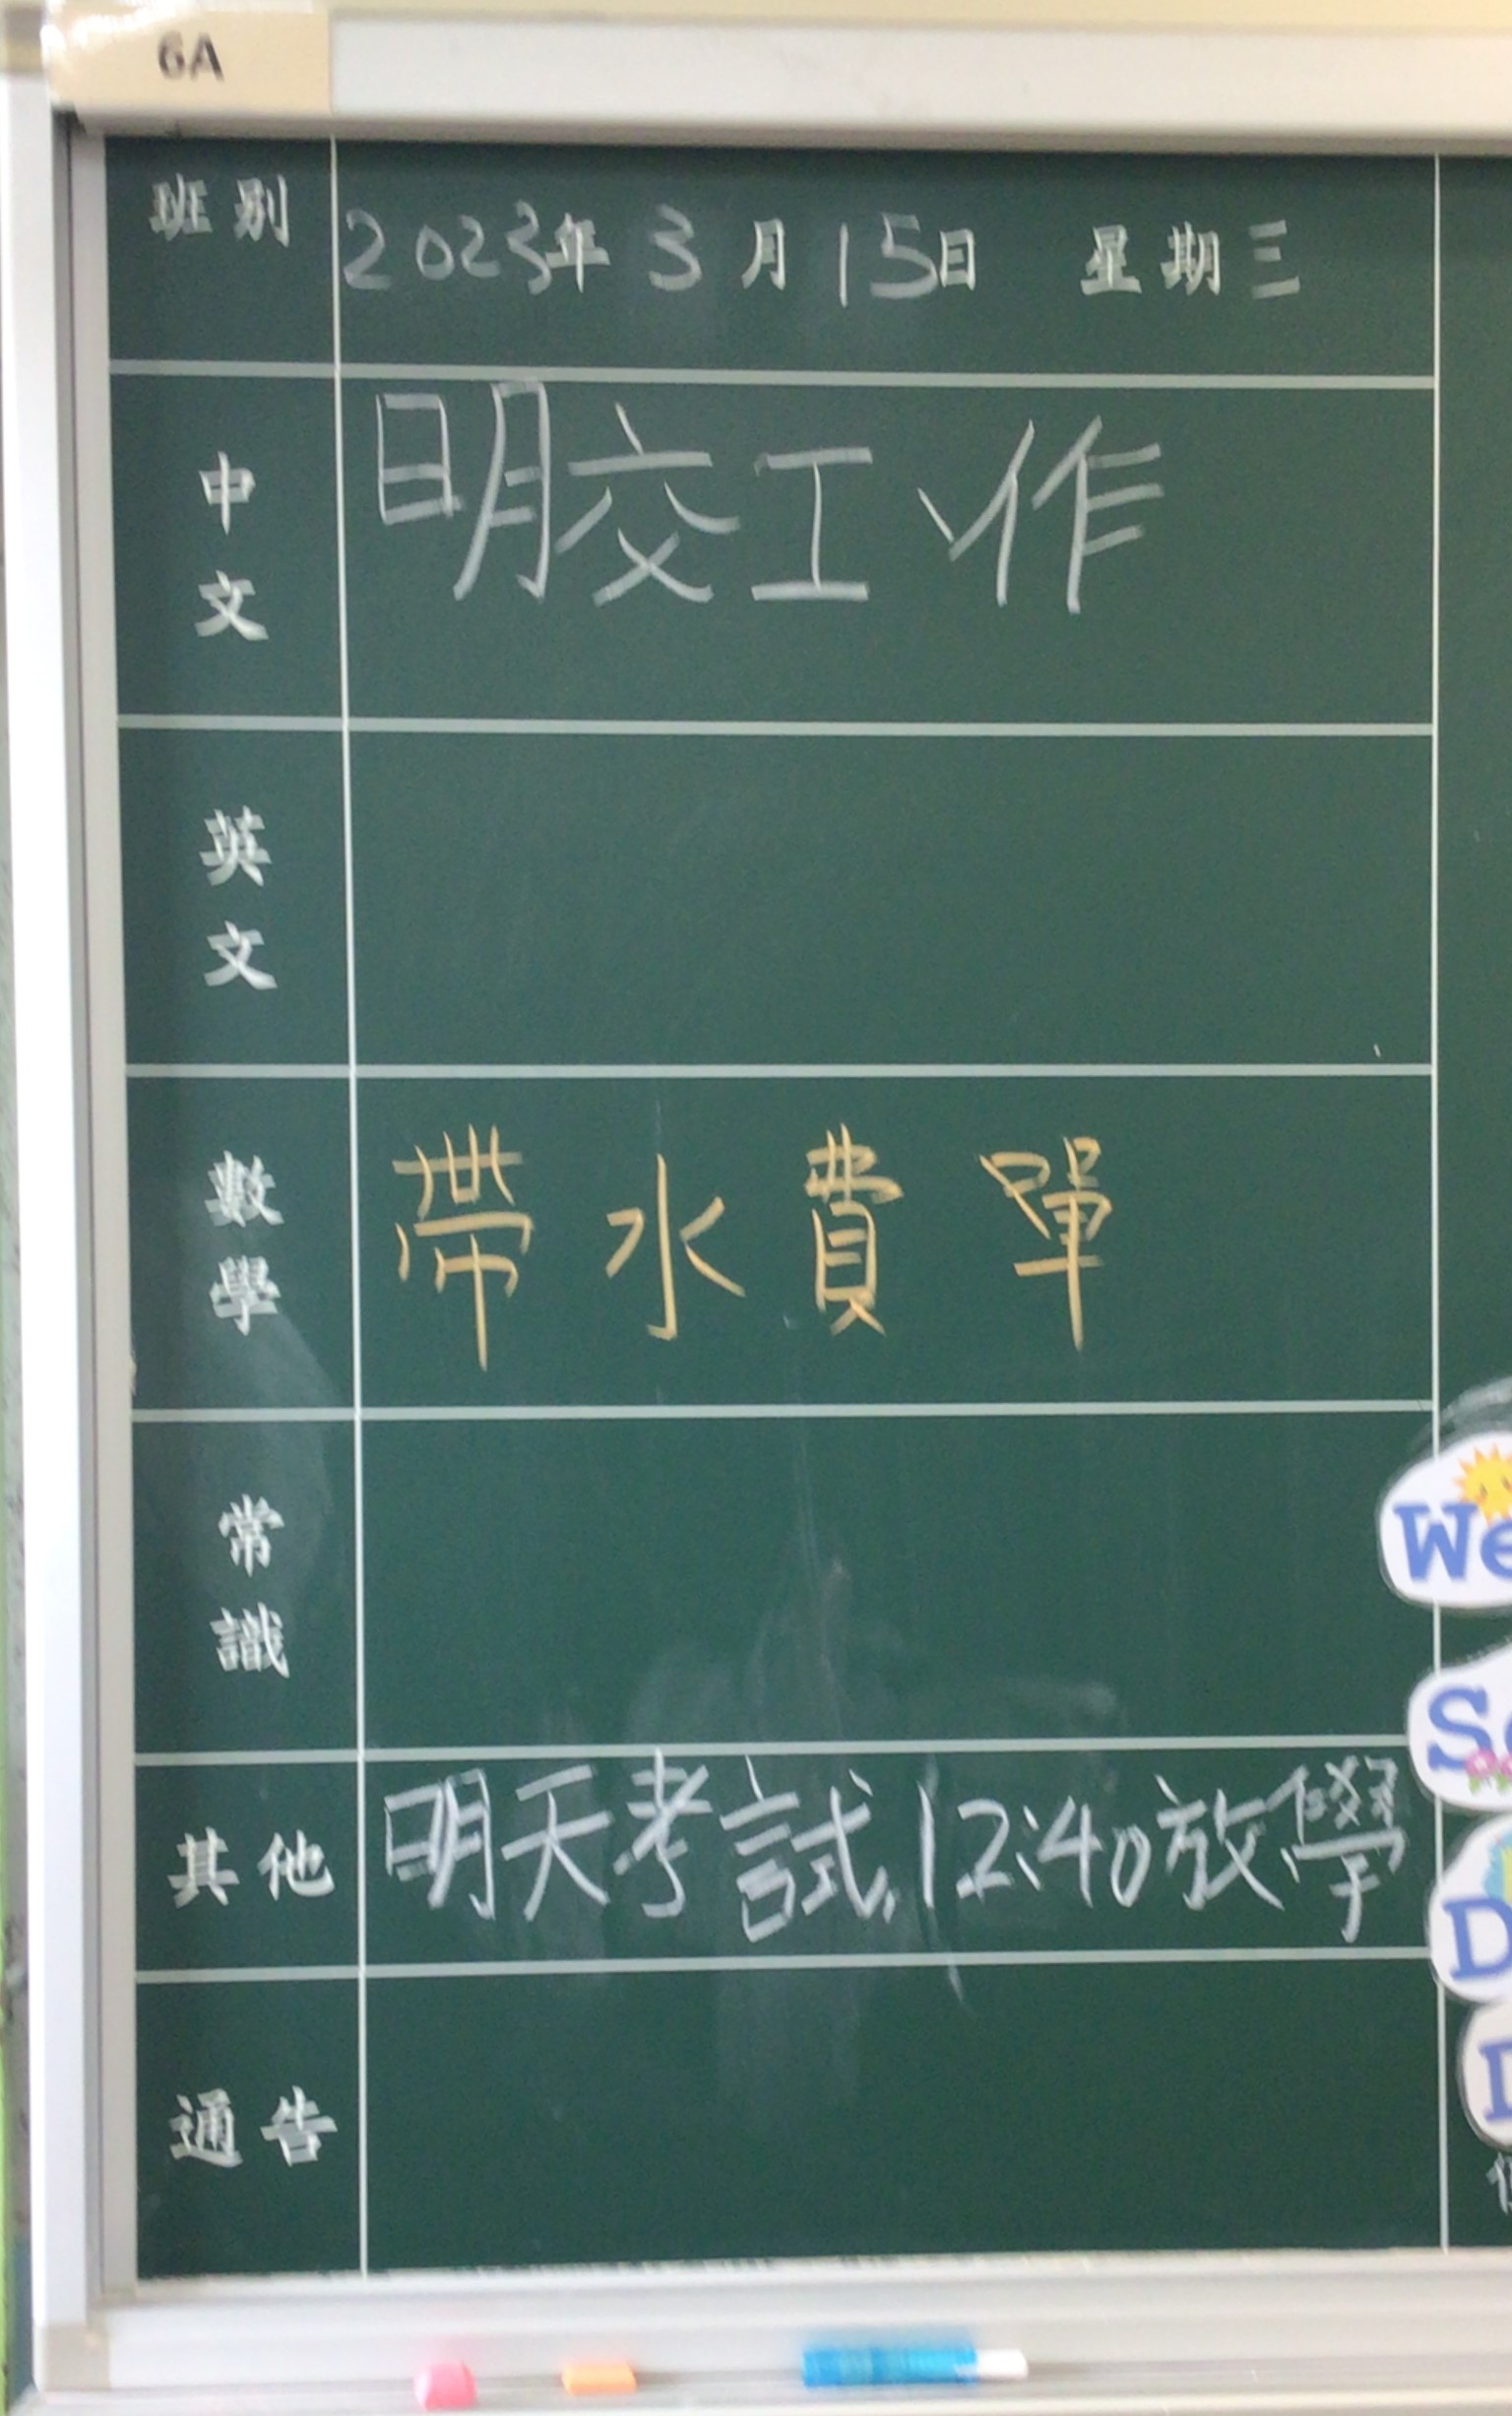 6A
班別 2023年3月15日 星期三
中文 明交工作
英文
數學 帶水費單
常識
其他 明天考試,12:40放學
通告
We
S
D